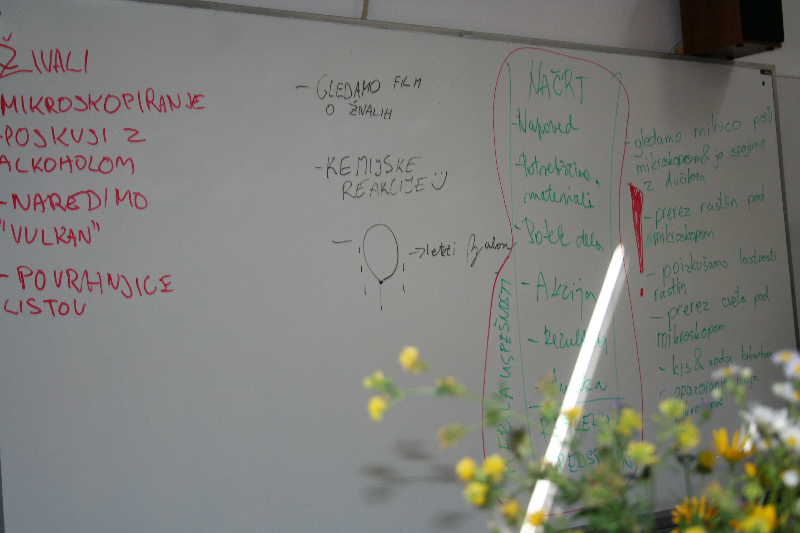 ŽIVALI
MIKROSKOPIRANJE
-POSKUSI Z
ALKOHOLOM
-NAREDIMO
"VULKAN"
-POVRHNJICE
LISTOV
-GLEDAMO FILM
O ŽIVALIH
-KEMIJSKE
REAKCIJE
-
→leteči balon
MERILA USPEŠNOSTI
NAČRT
-Napoved
-Potrebščine,
materiali
-Potek dela
-Akcija
-Rezultati
-gledamo milnico pod
mikroskopom & jo spojimo
z dvižilom
-prerez rastlin pod
mikroskopom
-poizkušamo lastnosti
rastlin
-prerez cveta pod
mikroskopom
-kis & soda bikarbona